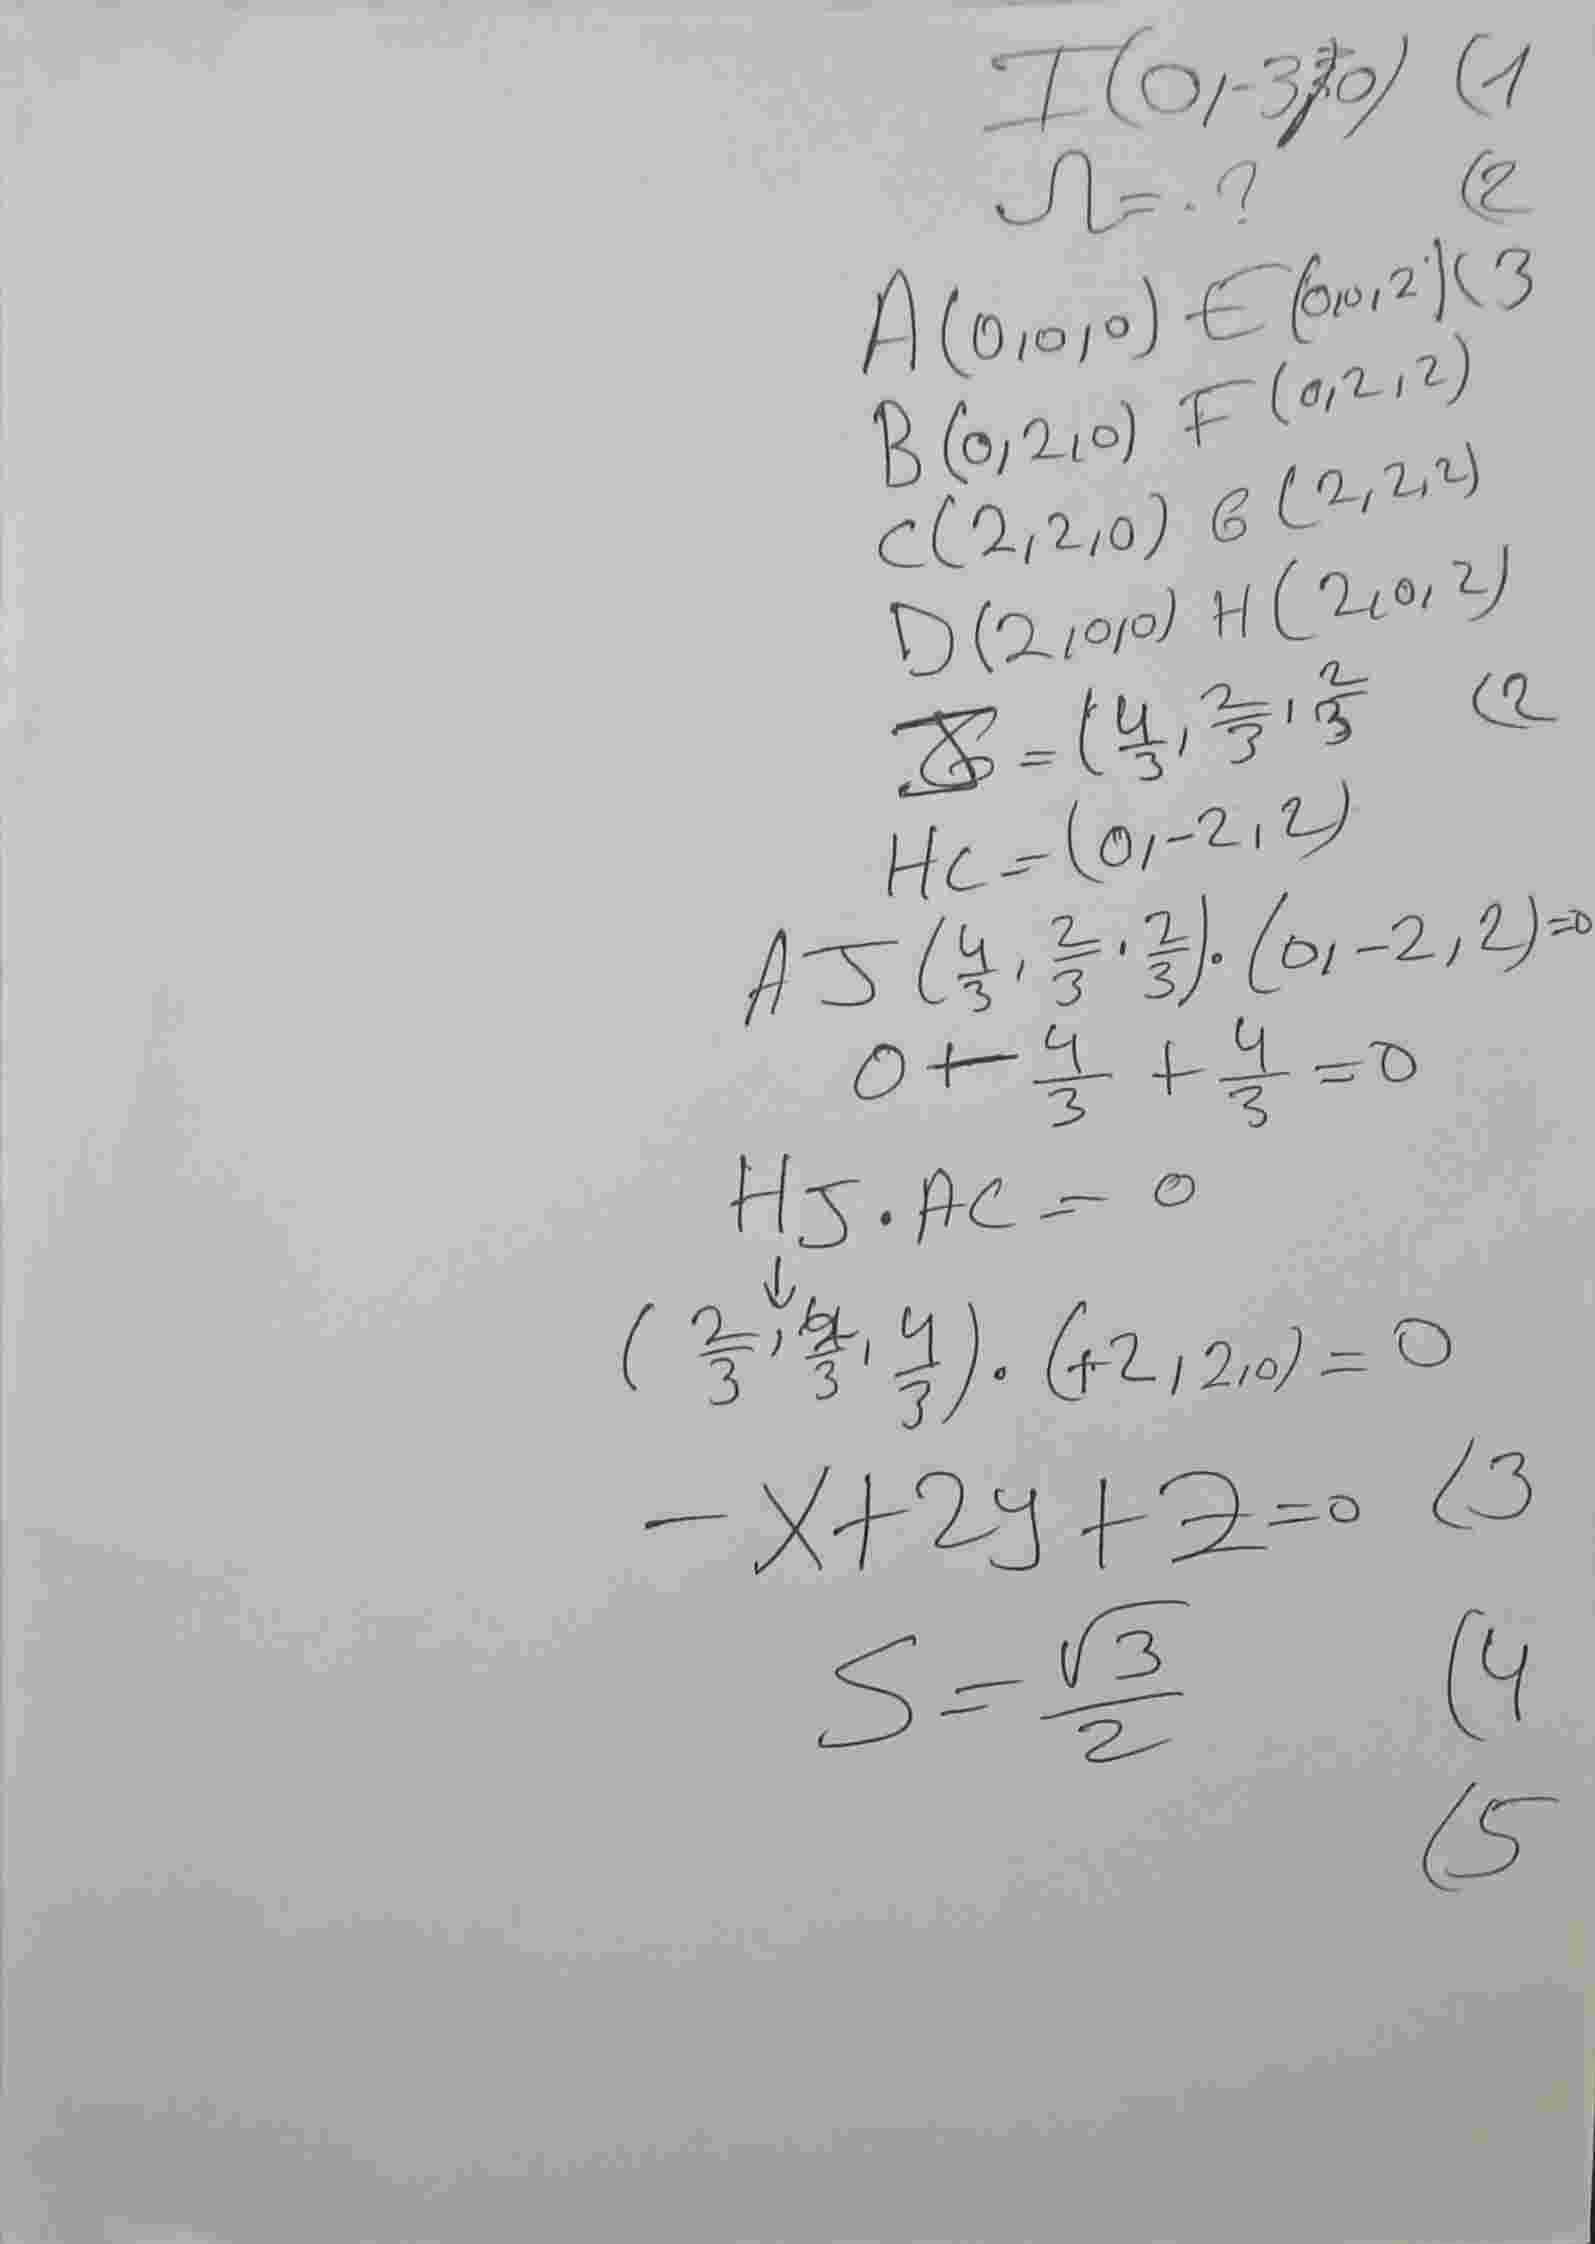 I(0,-3,0) (1
Ω=.? (2
A(0,0,0) E(0,0,2) (3
B(0,2,0) F(0,2,2)
C(2,2,0) G(2,2,2)
D(2,0,0) H(2,0,2)
= (4/3, 2/3, 2/3 (2
HC=(0,-2,2)
AJ(4/3, 2/3, 2/3).(0,-2,2)=0
0+-4/3+4/3=0
HJ.AC=0
↓
(2/3, /3, 4/3).(+2,2,0)=0
-x+2y+z=0 (3
S=√3/2 (4
(5